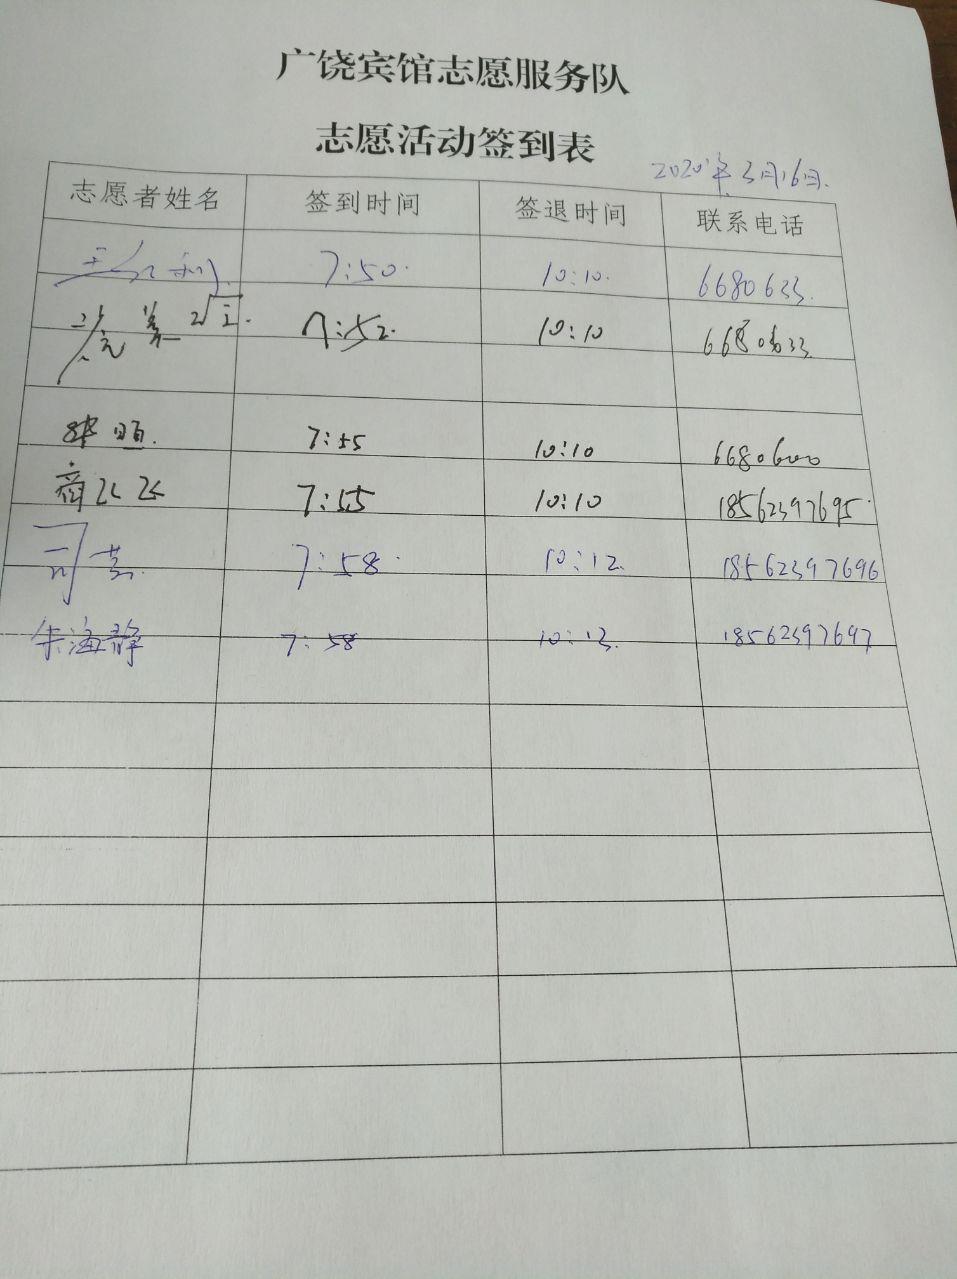 广饶宾馆志愿服务队
志愿活动签到表
2020年3月16日.
志愿者姓名 签到时间 签退时间 联系电话
7:50. 10:10. 6680633.
7:52. 10:10 6680633
7:55 10:10 6680600
商 7:55 10:10 18562397695
司 7:58. 10:12. 18562397696
朱海静 7:58 10:13. 18562397697